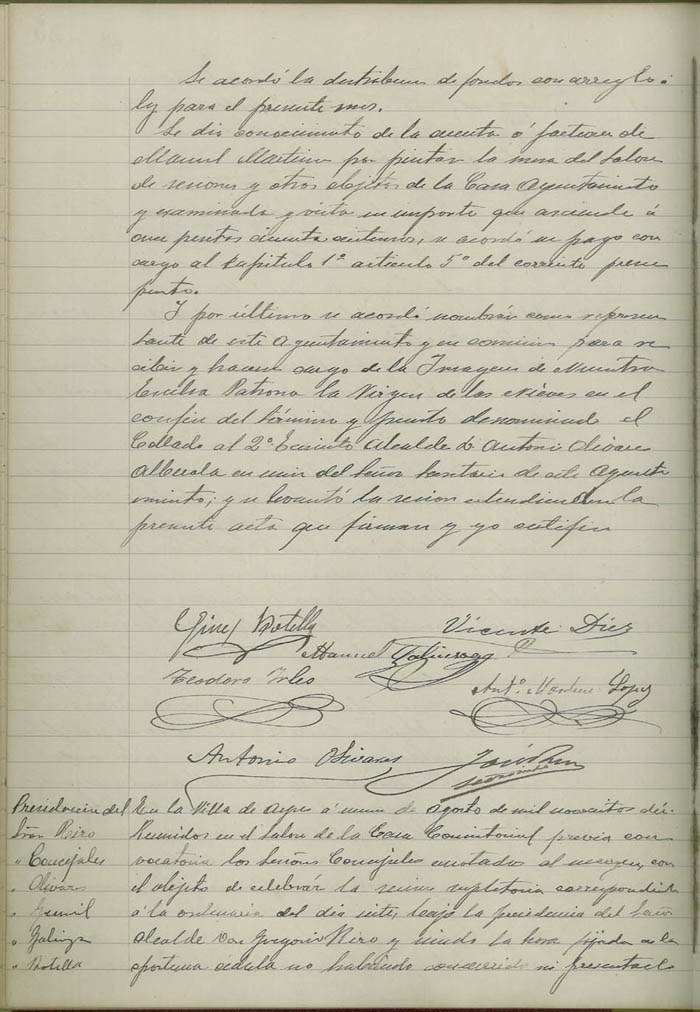 Se acordó la distribucion de fondos con arreglo a
ley para el presente mes.
Se dio conocimiento de la cuenta ó factura de
Manuel Martinez por pintar la mesa del Salon
de sesiones y otros objetos de la Casa Ayuntamiento
y examinada y vista su importe que asciende á
once pesetas cincuenta centimos, se acordó su pago con
cargo al Capitulo 1º articulo 5º del corriente presu
puesto.
Y por último se acordó nombrar como represen
tante de este Ayuntamiento y en comision para re
cibir y hacerse cargo de la Imagen de Nuestra
Excelsa Patrona la Virgen de las Nieves en el
confin del término y punto denominado el
Collado al 2º Teniente Alcalde D. Antonio Olivares
Alberola en union del Señor Secretario de este Ayunta
miento; y se levantó la sesion estendiendose la
presente acta que firman y yo certifico
Gines Botella Vicente Diez
Manuel Galinsoga
Teodoro Irles Antº Martinez Lopez
Antonio Olivares José
Secretario
Presidencia del En la Villa de Aspe á nueve de Agosto de mil novecientos diez.
Señor Reiro Reunidos en el Salon de la Casa Consistorial previa con
" Concejales vocatoria los Señores Concejales anotados al margen, con
" Olivares el objeto de celebrar la sesion supletoria correspondiente
" á la ordinaria del dia siete, bajo la presidencia del Señor
" Galinsoga Alcalde Don Gregorio Reiro y siendo la hora fijada en la
" Botella oportuna cédula no habiendo concurrido ni presentado